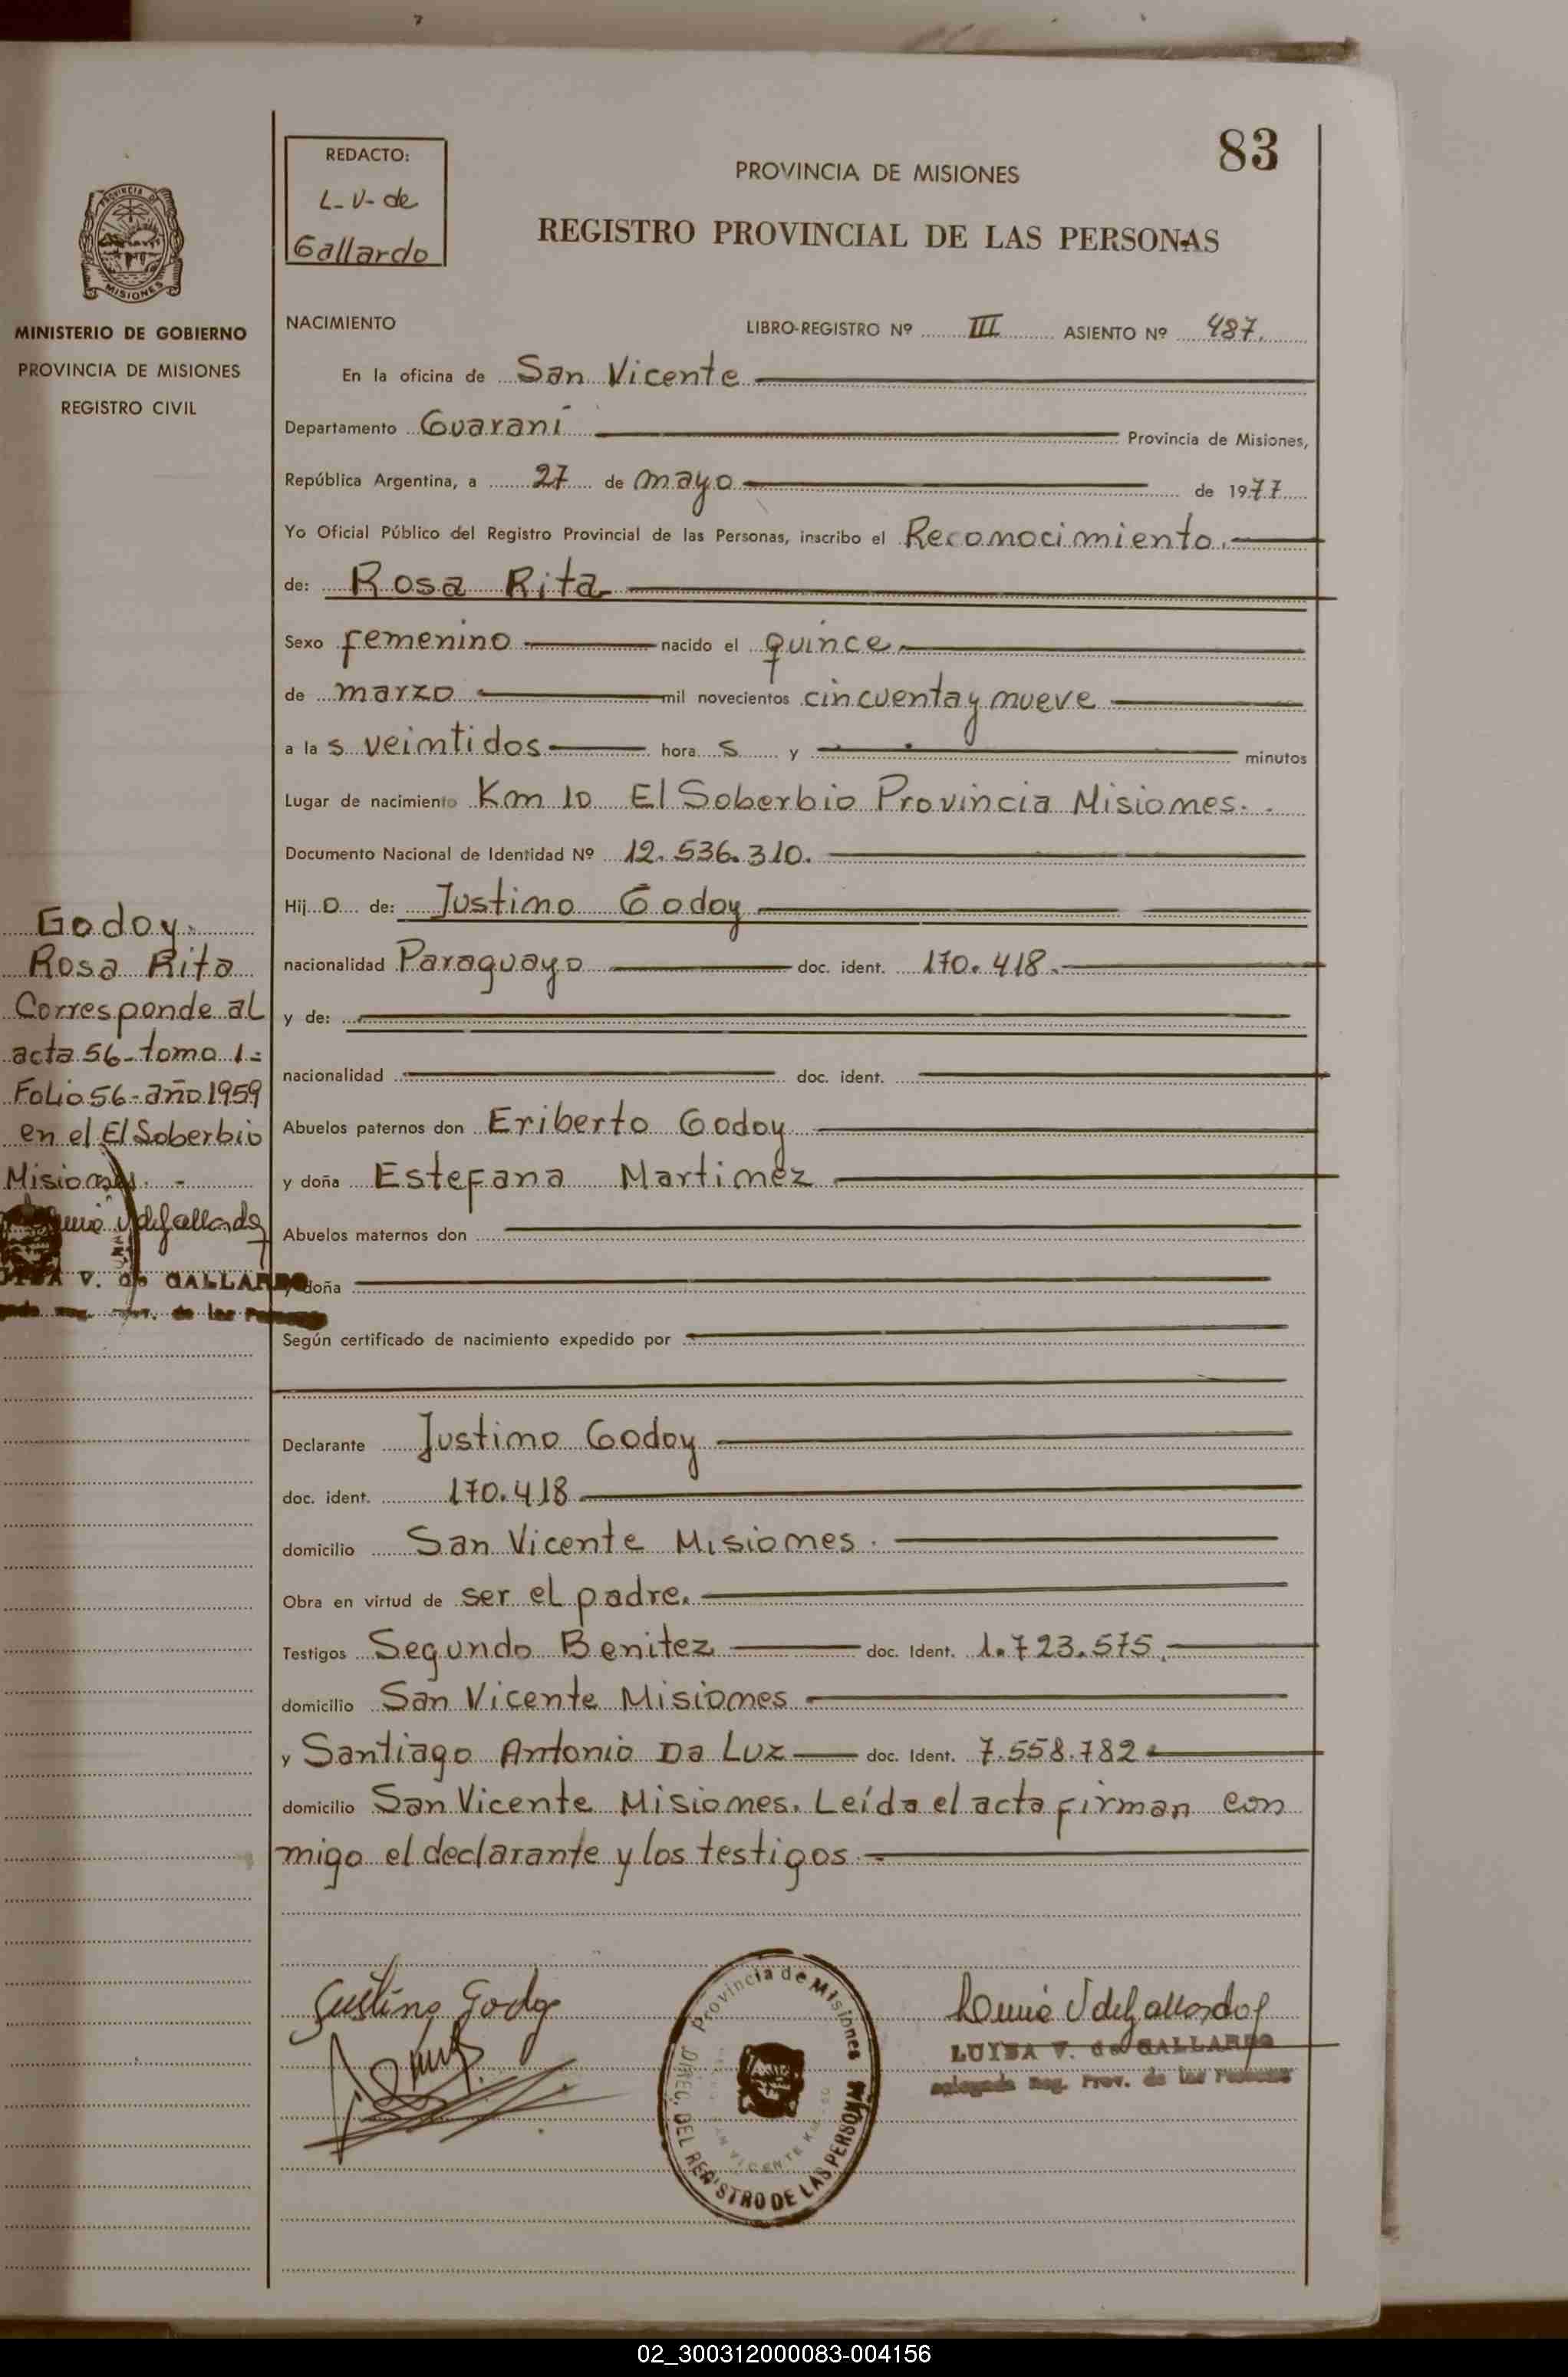 83
REDACTO:
L-V-de
Gallardo
PROVINCIA DE MISIONES
REGISTRO PROVINCIAL DE LAS PERSONAS
PROVINCIA DE
MISIONES
MINISTERIO DE GOBIERNO
PROVINCIA DE MISIONES
REGISTRO CIVIL
NACIMIENTO
LIBRO-REGISTRO Nº III ASIENTO Nº 487.
En la oficina de San Vicente
Departamento Guaraní Provincia de Misiones,
República Argentina, a 27 de mayo de 1977
Yo Oficial Público del Registro Provincial de las Personas, inscribo el Reconocimiento.
de: Rosa Rita
Sexo femenino nacido el quince
de marzo mil novecientos cincuenta y nueve
a las veintidos hora s y minutos
Lugar de nacimiento Km 10 El Soberbio Provincia Misiones.
Documento Nacional de Identidad Nº 12.536.310.
Hij o de: Justino Godoy
nacionalidad Paraguayo doc. ident. 170.418.
y de:
nacionalidad doc. ident.
Abuelos paternos don Eriberto Godoy
y doña Estefana Martinez
Abuelos maternos don
y doña
Según certificado de nacimiento expedido por
Declarante Justino Godoy
doc. ident. 170.418
domicilio San Vicente Misiones.
Obra en virtud de ser el padre.
Testigos Segundo Benitez doc. Ident. 1.723.575.
domicilio San Vicente Misiones
y Santiago Antonio Da Luz doc. Ident. 7.558.782
domicilio San Vicente Misiones. Leída el acta firman con
migo el declarante y los testigos
Godoy.
Rosa Rita
Corresponde al
acta 56-tomo 1-
Folio 56-año 1959
en el El Soberbio
Misiones.
V de Gallardo
V. de GALLARDO
de las
Justino Godoy
Provincia de Misiones
DIREC. DEL REGISTRO DE LAS PERSONAS
SAN VICENTE
V de Gallardo
LUISA V. de GALLARDO
Delegada Reg. Prov. de las Personas
02_300312000083-004156